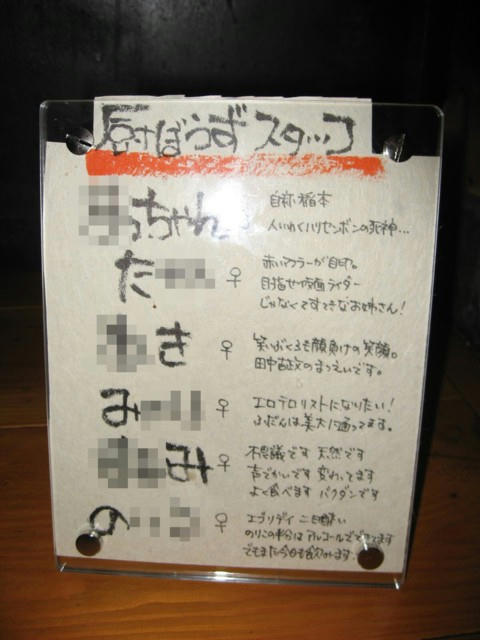 厨ぼうず スタッフ
っちゃん
自称 稲本
人いわくハリセンボンの死神…
た ♀
赤いマフラーが目印。
目指せ仮面ライダー
じゃなくてすてきなお姉さん!
き ♀
笑いぶくろも顔負けの笑顔。
田中のまつえいです。
み ♀
エロテロリストになりたい!
ふだんは美大に通ってます。
み ♀
不思議です 天然です
声でかいです 変わってます
よく食べます バクダンです
の ♀
エブリデイ 二日酔い
のりこの半分は アルコールでできてます
でもまた今日も飲みます。